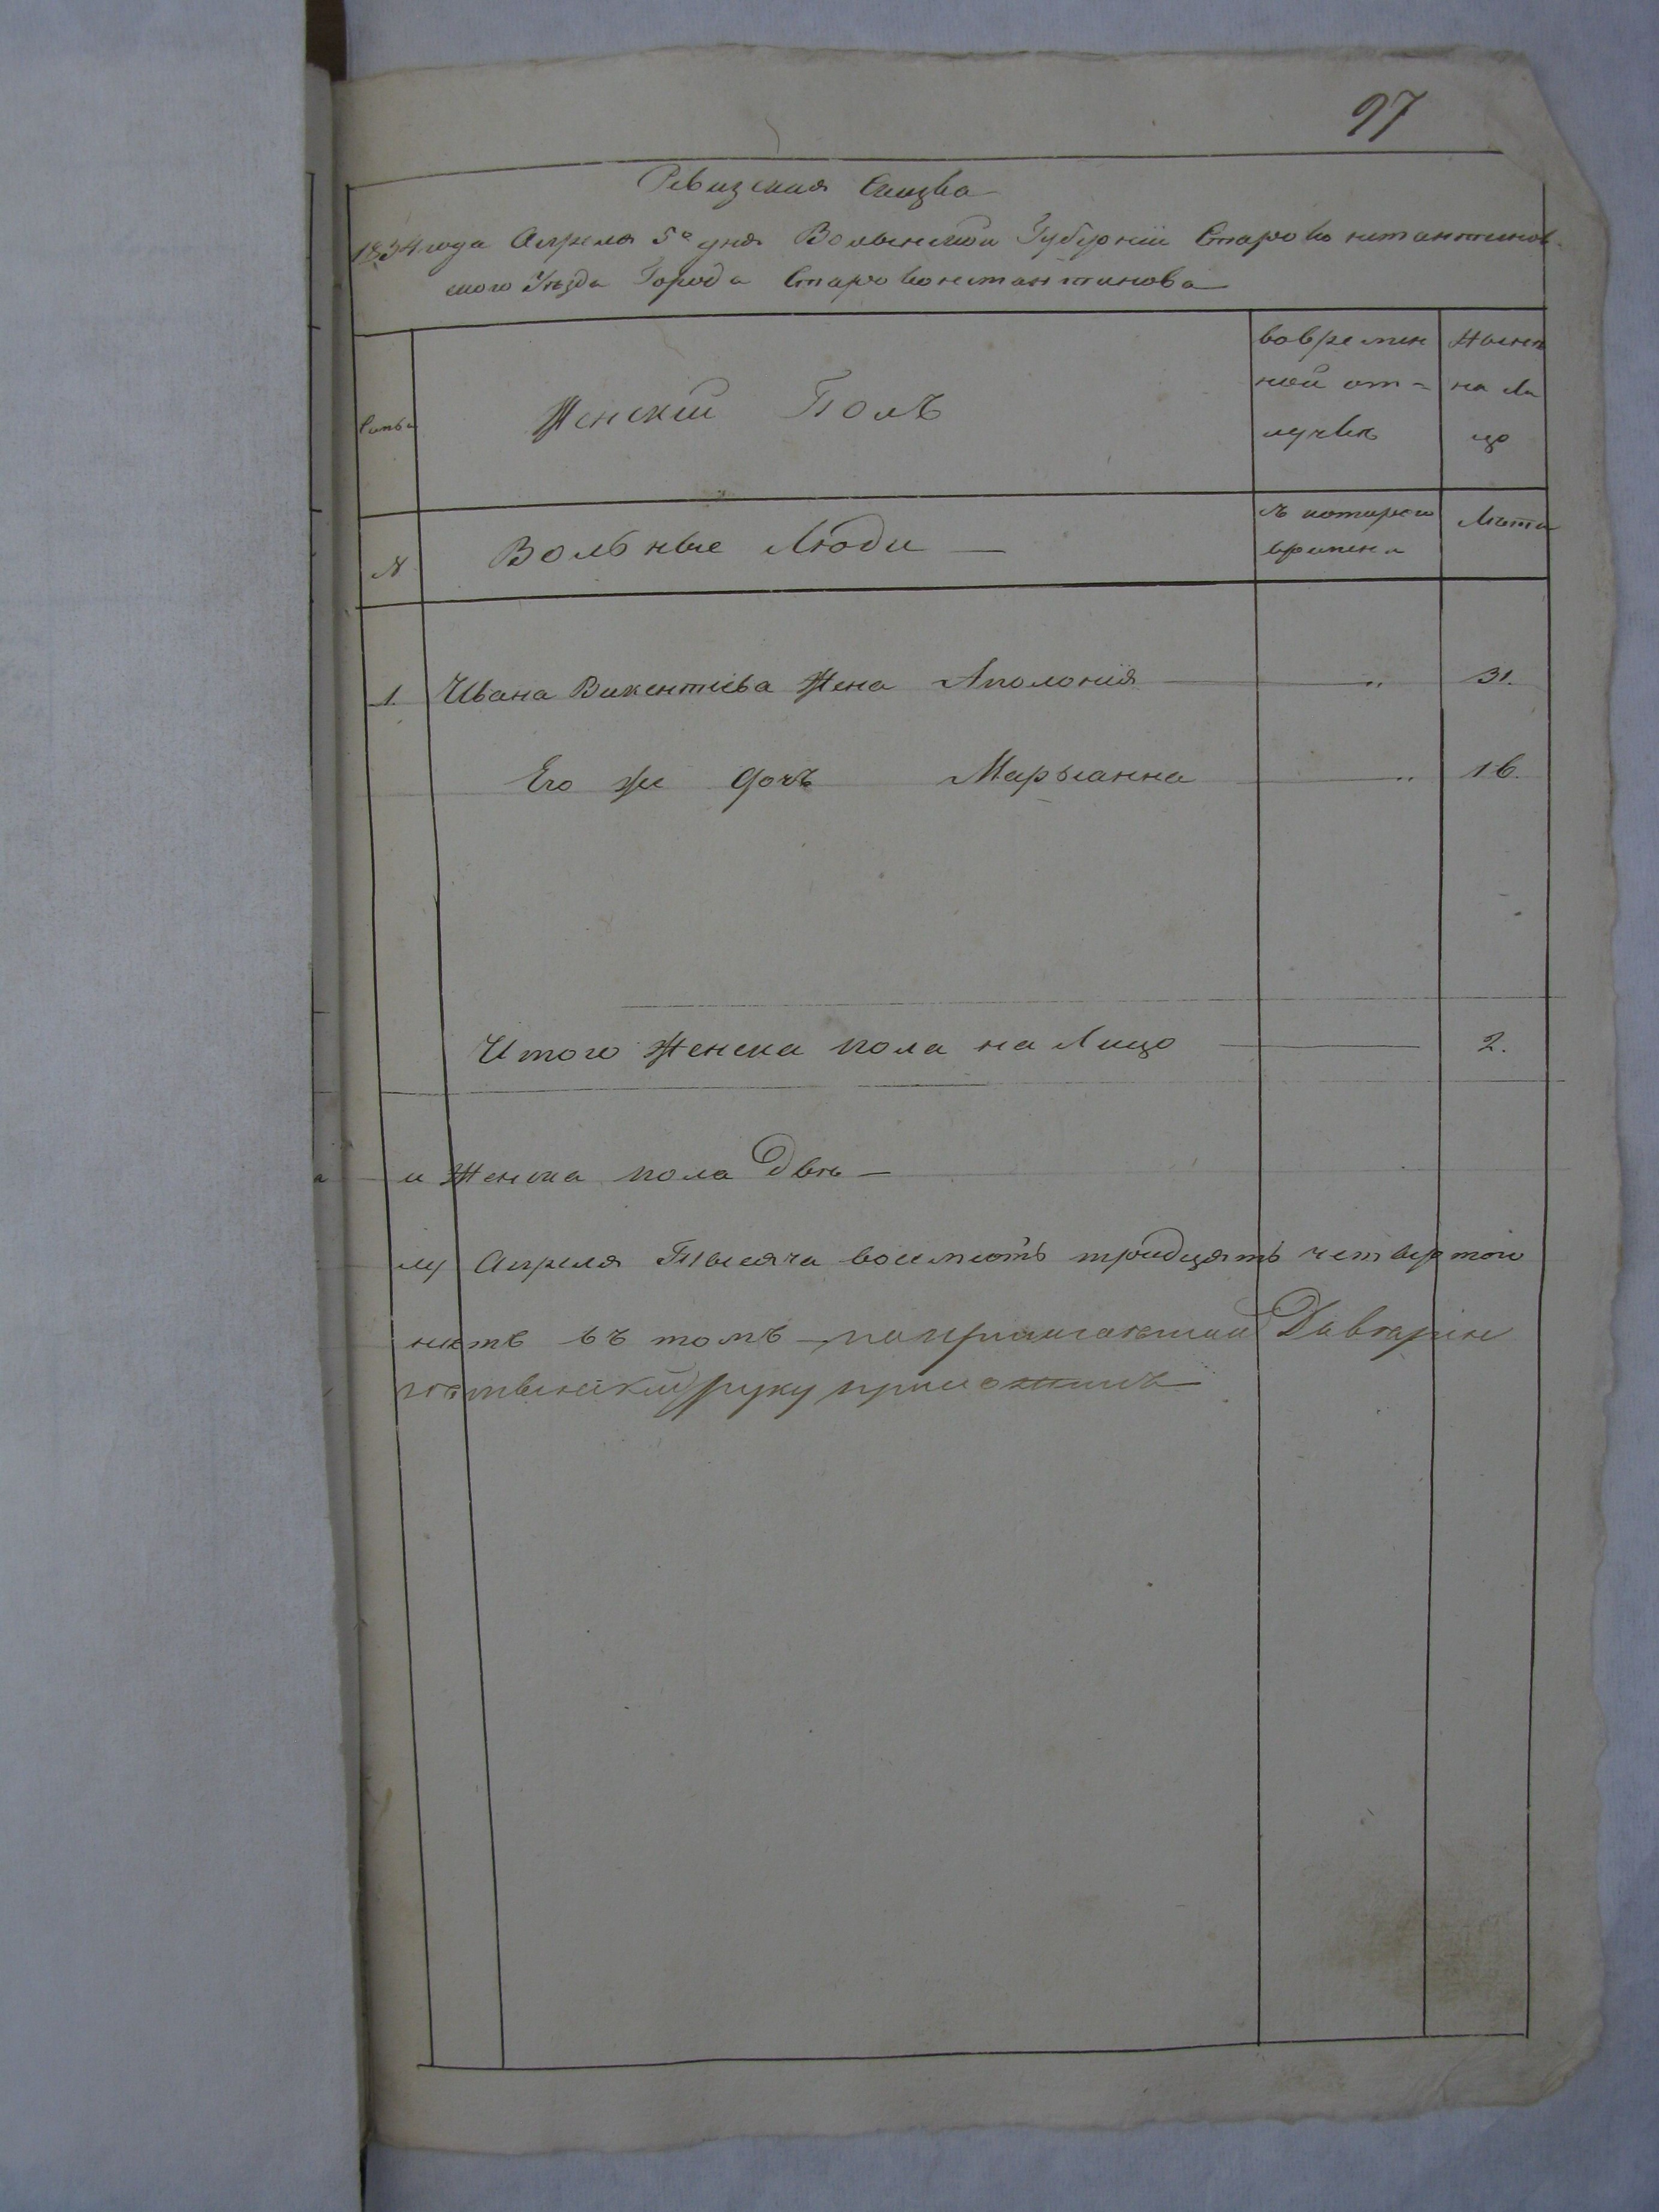 97
Ревизская Сказка
1834 года Апреля 5го дня Волынской Губернии Староконстантинов-
ского Уезда Города Староконстантинова
Семьи
Женский Полъ
во времен
ной от-
лучкѣ
Нынѣ
на ли
цо
№
Вольные Люди —
съ котораго
времени
Лѣта
1. Ивана Викентіева Жена Аполонія — „ 31.
Его же дочь Марыанна — „ 16.
Итого женска пола на лицо — 2.
и Женска пола Двѣ —
Апреля Тысяча восемсотъ тридцять четвертого
въ томъ
руку приложилъ